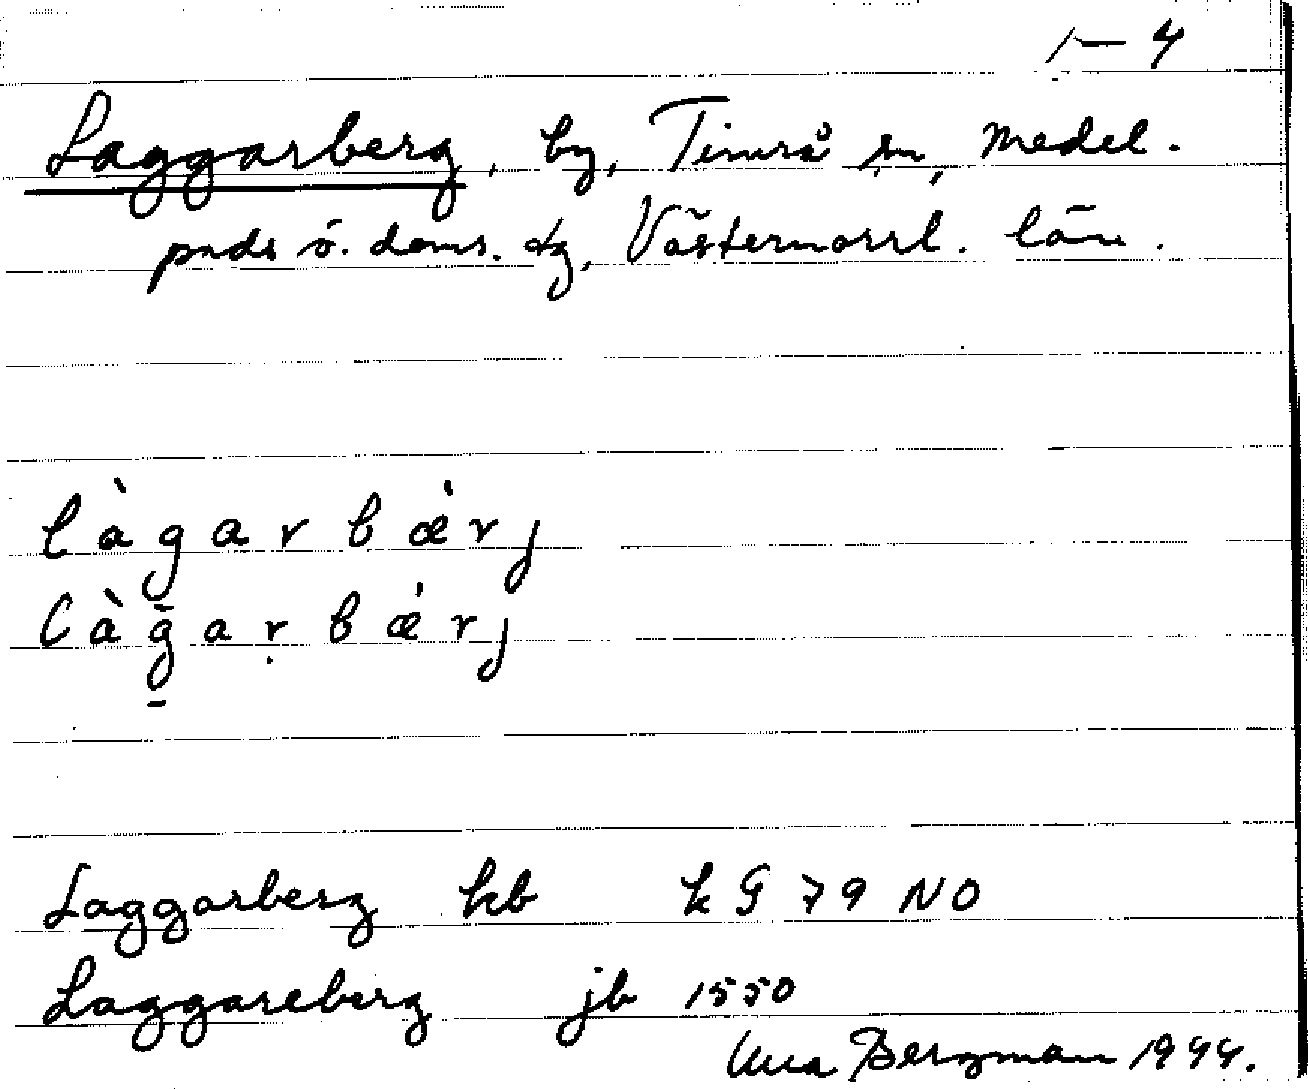 1-4
Laggarberg, by, Timrå sn, Medel.
pads ö. doms. dg, Västernorrl. län.
làgarbæ̀rj
làḡarbæ̀rj
Laggarberg kb k G 79 NO
Laggareberg jb 1550
Bergman 1944.